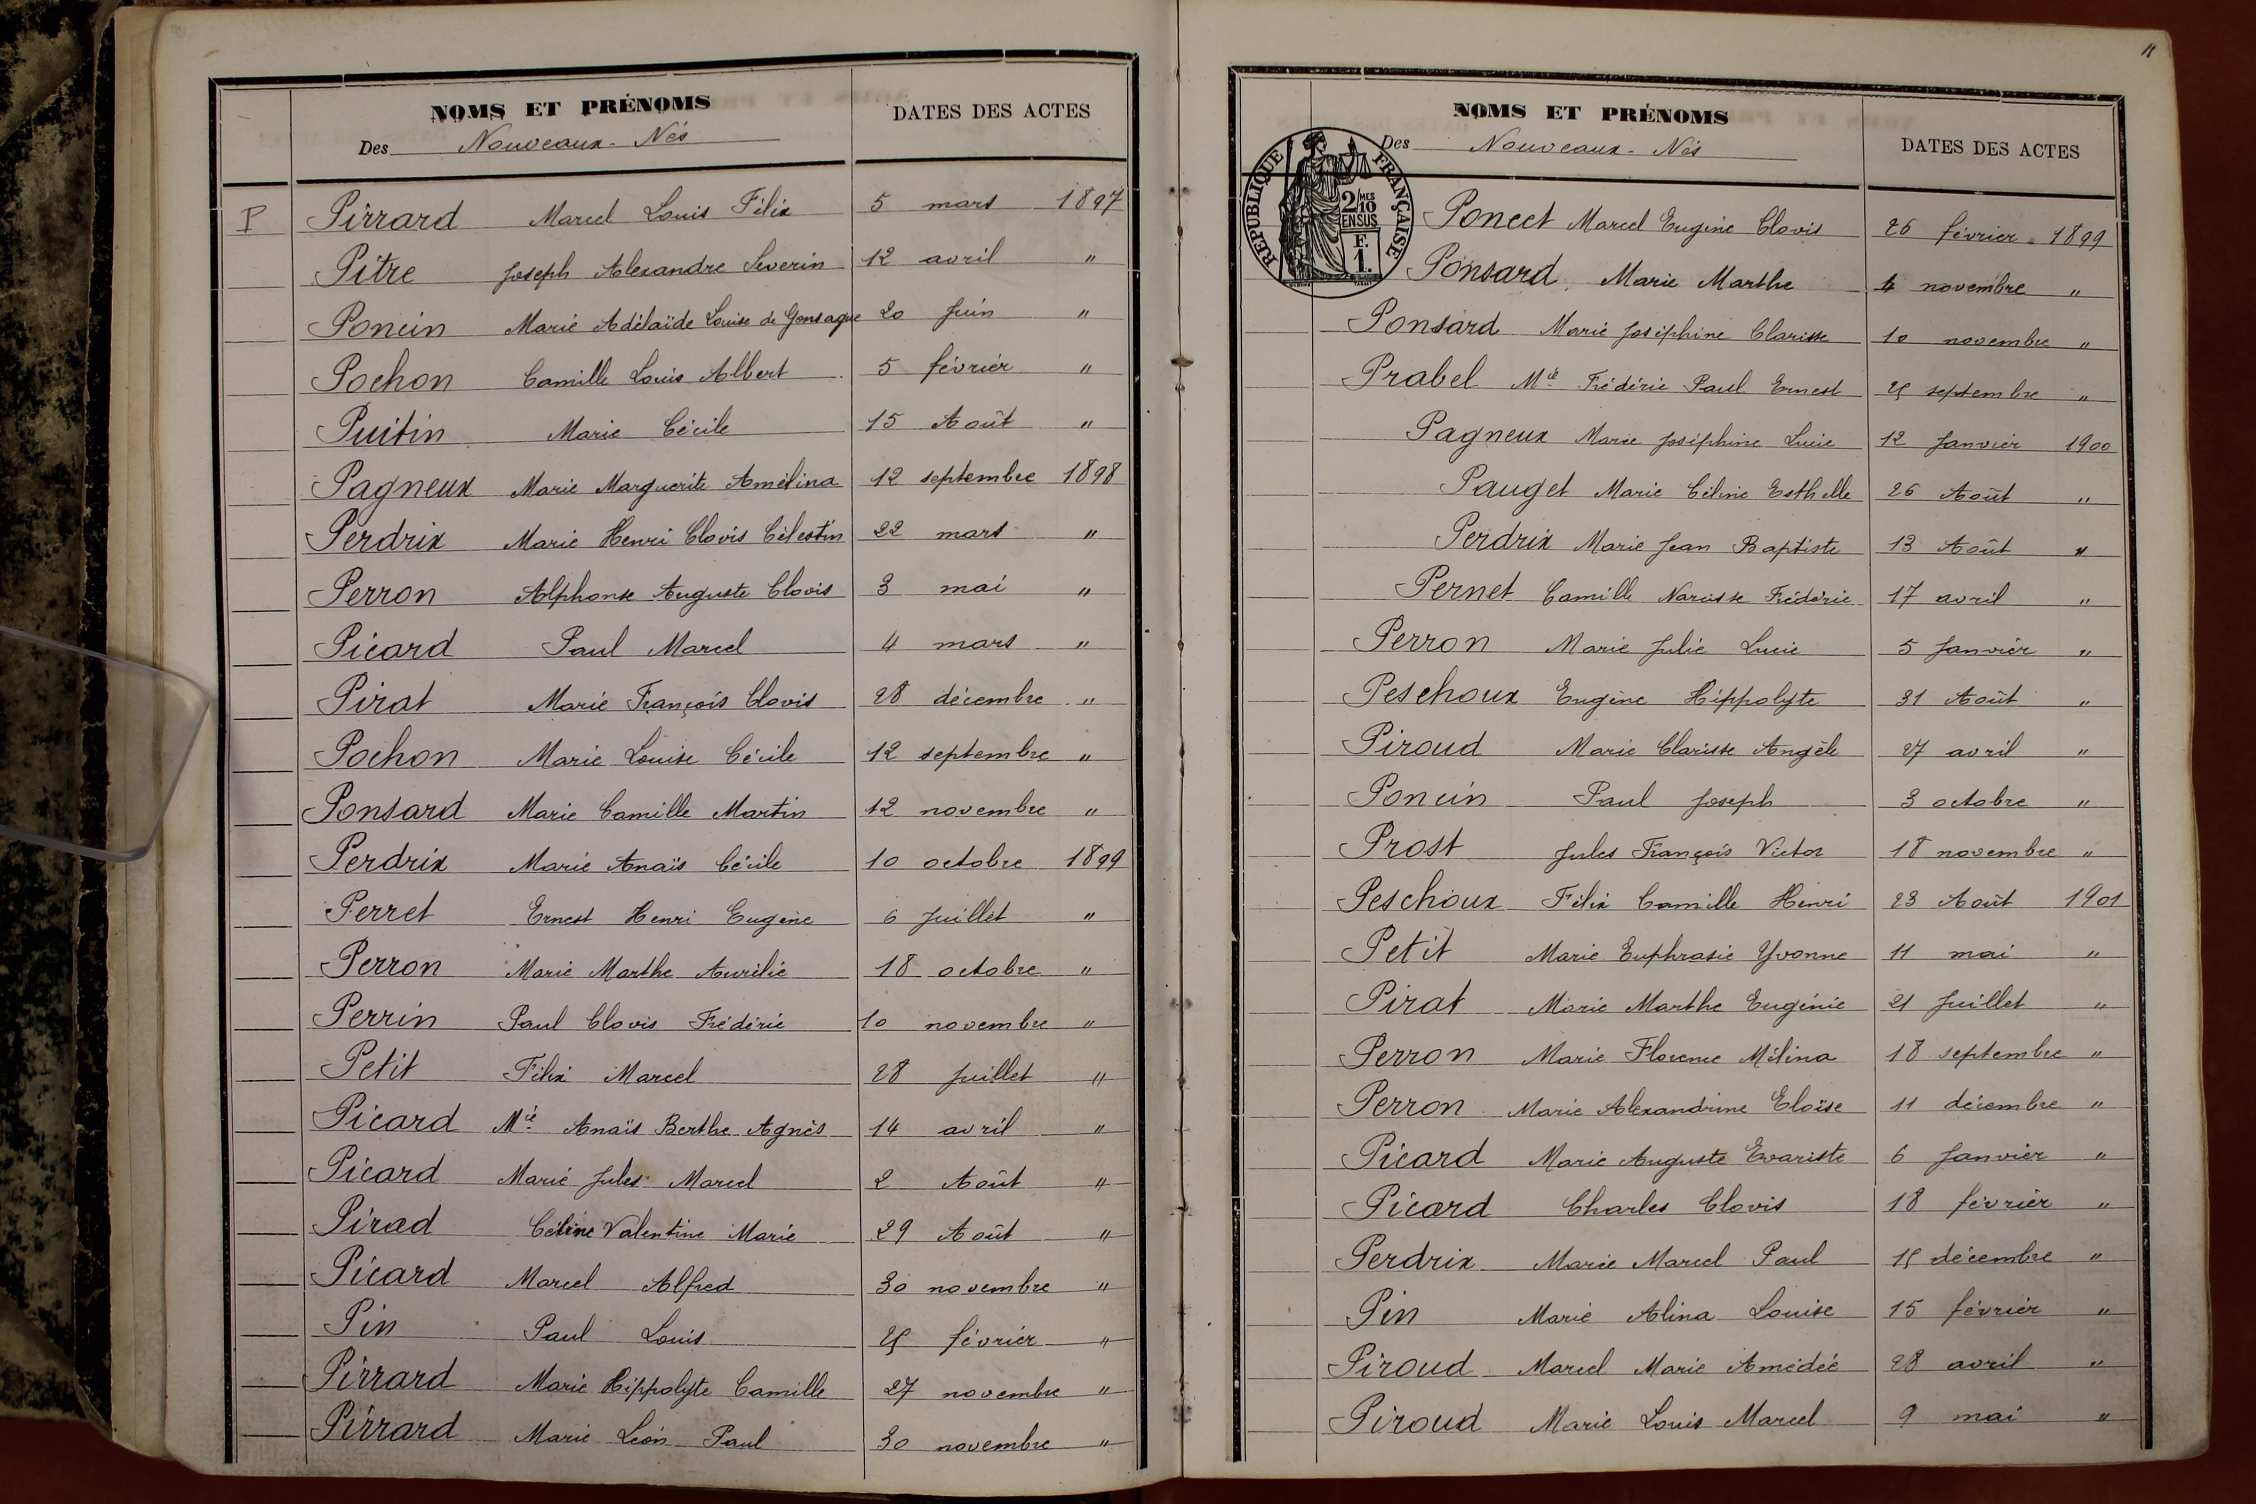 NOMS ET PRÉNOMS
DATES DES ACTES
Des Nouveaux-Nés
P Pirrard Marcel Louis Félix 5 mars 1897
Pitre Joseph Alexandre Severin 12 avril "
Poncin Marie Adélaïde Louise de Gonsague 20 Juin "
Pochon Camille Louis Albert 5 février "
Puitin Marie Cécile 15 Août "
Pagneux Marie Marguerite Amélina 12 septembre 1898
Perdrix Marie Henri Clovis Célestin 22 mars "
Perron Alphonse Auguste Clovis 3 mai "
Picard Paul Marcel 4 mars "
Pirat Marie François Clovis 28 décembre "
Pochon Marie Louise Cécile 12 septembre "
Ponsard Marie Camille Martin 12 novembre "
Perdrix Marie Anaïs Cécile 10 octobre 1899
Perret Ernest Henri Eugène 6 Juillet "
Perron Marie Marthe Aurélie 18 octobre "
Perrin Paul Clovis Frédéric 10 novembre "
Petit Félix Marcel 28 Juillet "
Picard Mie Anaïs Berthe Agnès 14 avril "
Picard Marie Jules Marcel 2 Août "
Pirad Céline Valentine Marie 29 Août "
Picard Marcel Alfred 30 novembre "
Pin Paul Louis 25 février "
Pirrard Marie Hippolyte Camille 27 novembre "
Pirrard Marie Léon Paul 30 novembre "
11
NOMS ET PRÉNOMS
DATES DES ACTES
Des Nouveaux-Nés
RÉPUBLIQUE FRANÇAISE
2/10 MES
EN SUS
F.
1.
Poncet Marcel Eugène Clovis 26 février 1899
Ponsard Marie Marthe 4 novembre "
Ponsard Marie Joséphine Clarisse 10 novembre "
Prabel Mie Frédéric Paul Ernest 25 septembre "
Pagneux Marie Joséphine Lucie 12 Janvier 1900
Pauget Marie Céline Esthelle 26 Août "
Perdrix Marie Jean Baptiste 13 Août "
Pernet Camille Narcisse Frédéric 17 avril "
Perron Marie Julie Lucie 5 Janvier "
Peschoux Eugène Hippolyte 31 Août "
Piroud Marie Clarisse Angèle 27 avril "
Poncin Paul Joseph 3 octobre "
Prost Jules François Victor 18 novembre "
Peschoux Félix Camille Henri 23 Août 1901
Petit Marie Euphrasie Yvonne 11 mai "
Pirat Marie Marthe Eugénie 21 Juillet "
Perron Marie Florence Mélina 18 septembre "
Perron Marie Alexandrine Eloïse 11 décembre "
Picard Marie Auguste Evariste 6 Janvier "
Picard Charles Clovis 18 février "
Perdrix Marie Marcel Paul 15 décembre "
Pin Marie Alina Louise 15 février "
Piroud Marcel Marie Amédée 28 avril "
Piroud Marie Louis Marcel 9 mai "